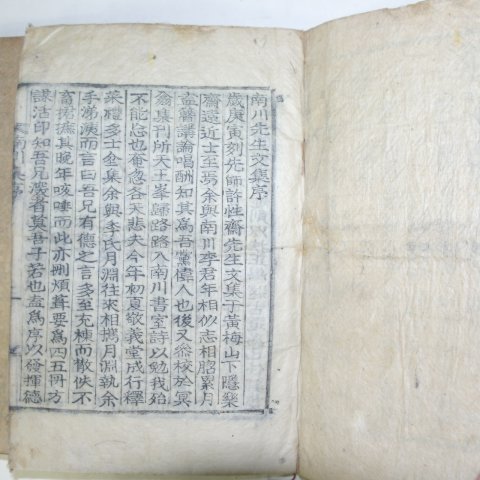 南川先生文集序
歲庚寅刻先師許性齋先生文集于黃梅山下隱樂
齋遠近士至焉余與南川李君年相似志相照累月
盍簪講論唱酬知其爲吾黨偉人也後又叅校於冥
翁集刊所天土峯歸路路入南川書室詩以勉我殆
不能忘也奄忽各天悲夫今年初夏敬義堂成行釋
菜禮多士僉集余與李氏月淵往來相携月淵執余
手涕洟而言曰吾兄有德之言多至充棟而散佚不
畜掇撫其晚年咳唾而此亦刪煩聳要爲四五冊方
謀活印知吾兄深者莫吾子若也盍爲序以發揮德
南川集序